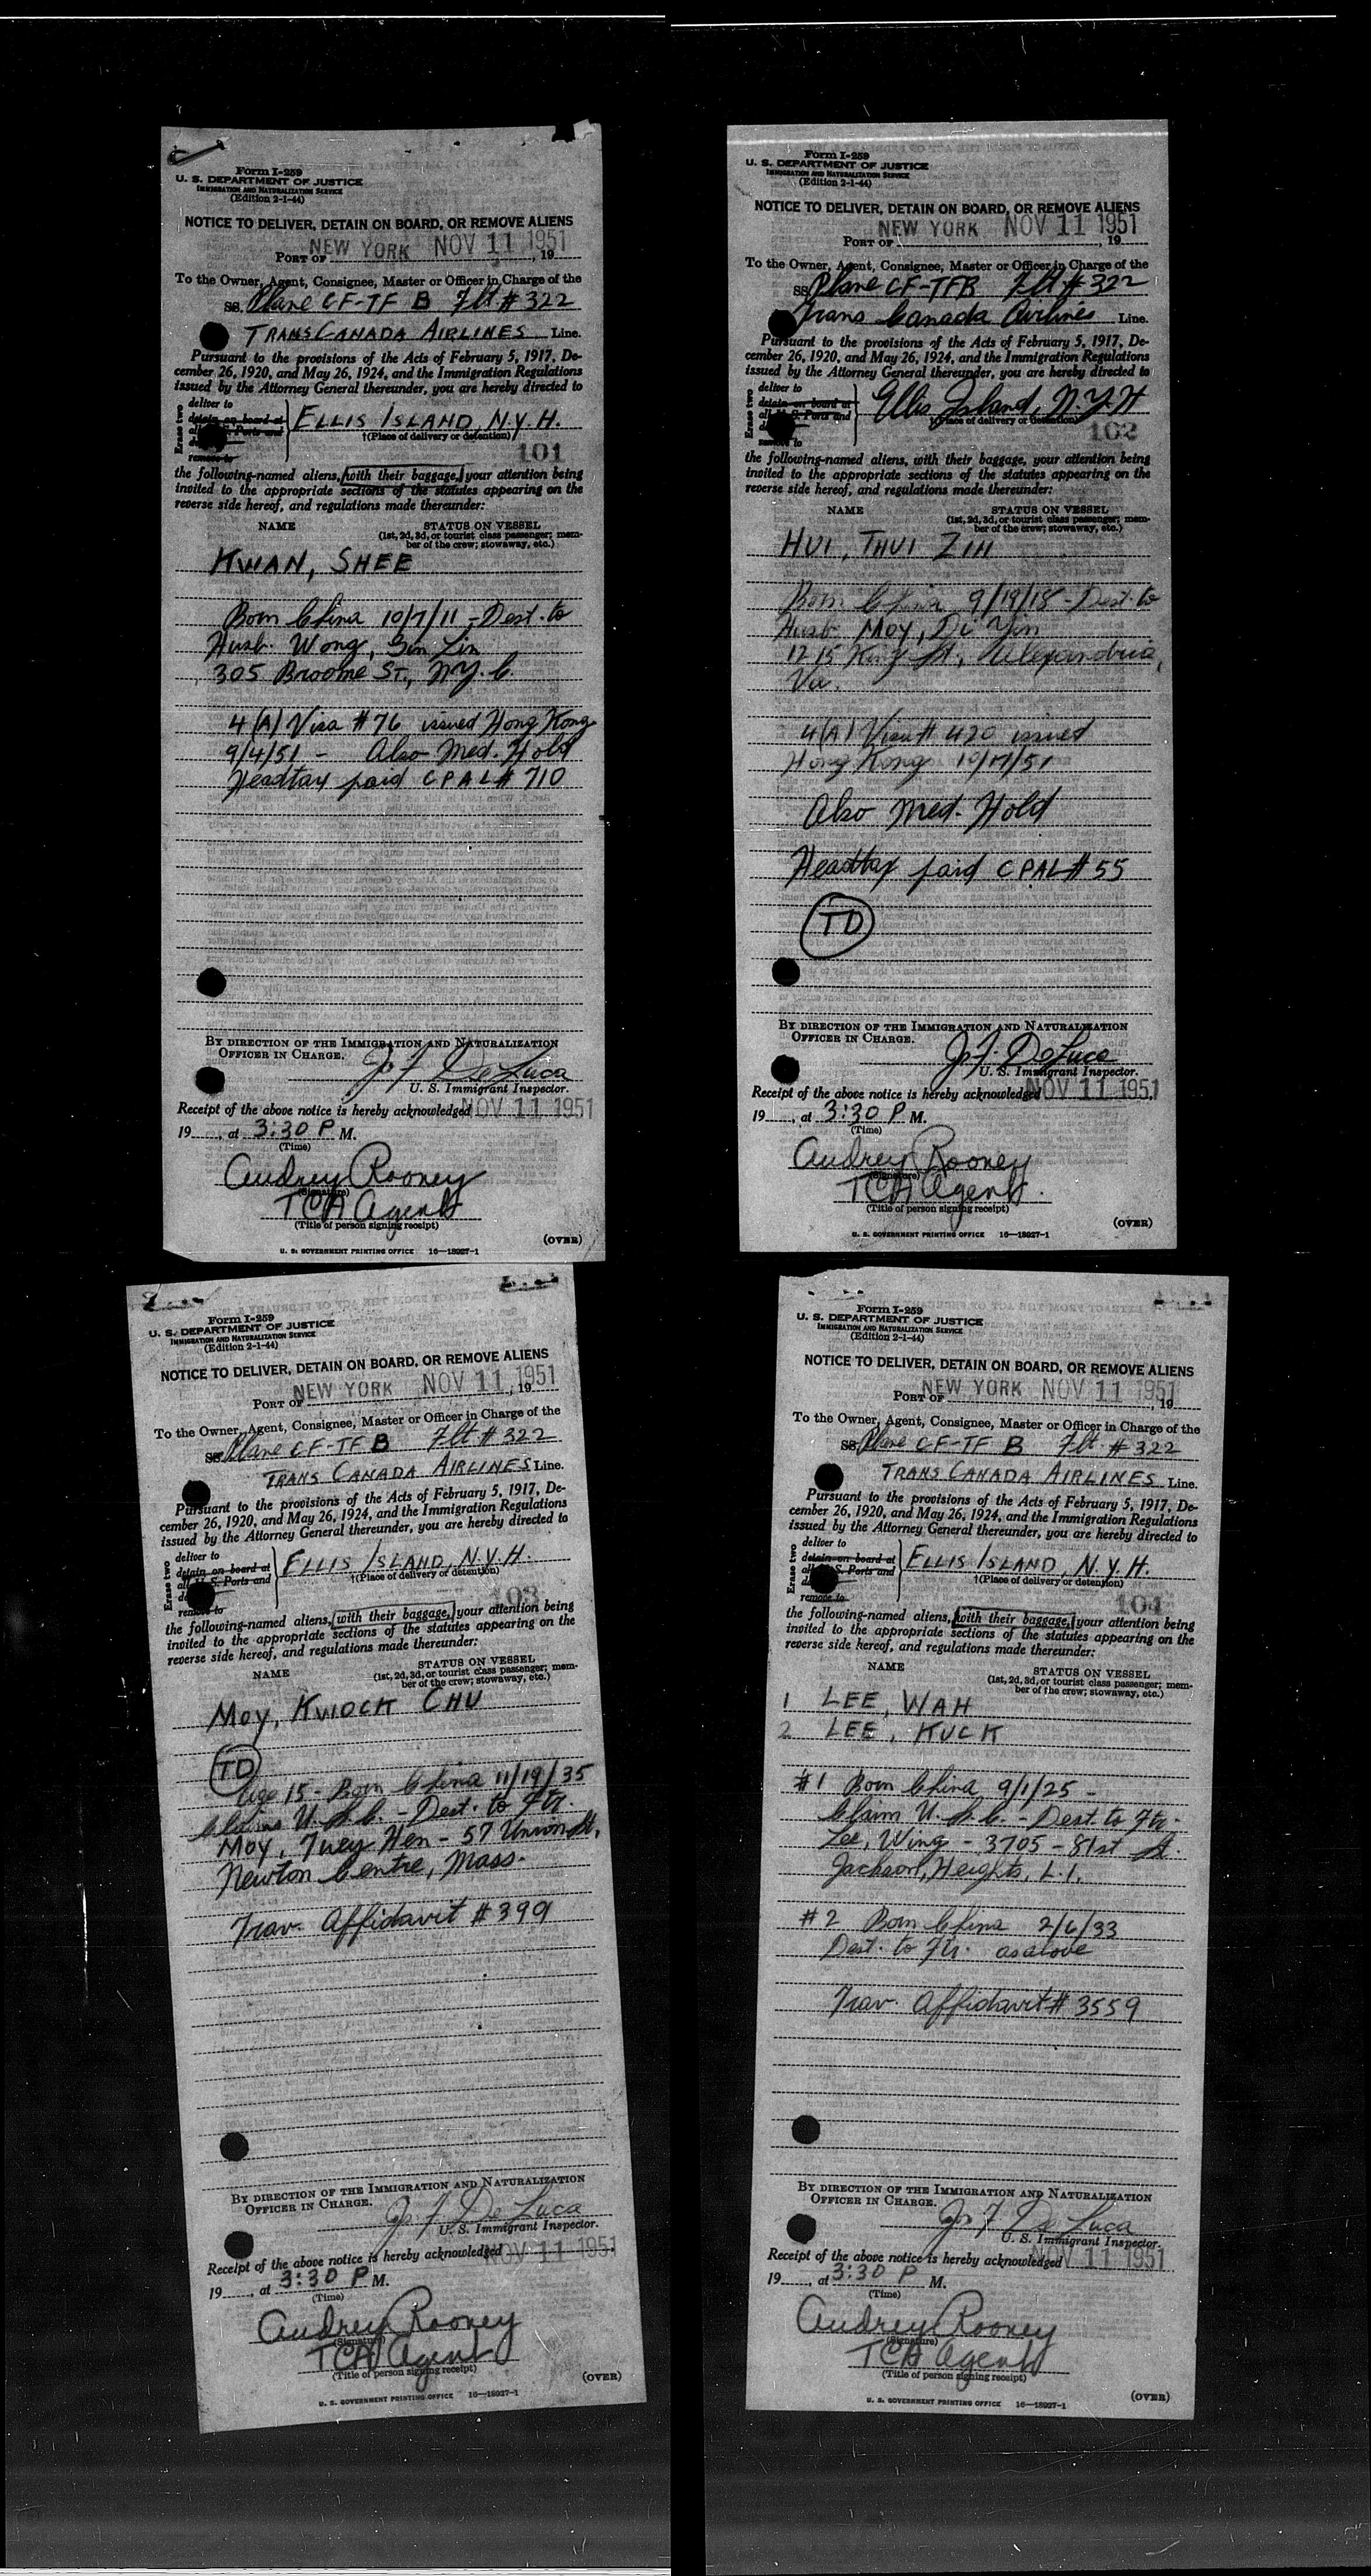 Form I-259
U. S. DEPARTMENT OF JUSTICE
IMMIGRATION AND NATURALIZATION SERVICE
(Edition 2-1-44)
NOTICE TO DELIVER, DETAIN ON BOARD, OR REMOVE ALIENS
PORT OF NEW YORK NOV 11 1951, 19
To the Owner, Agent, Consignee, Master or Officer in Charge of the
SS. Plane CF-TF B Flt # 322
TRANS CANADA AIRLINES Line.
Pursuant to the provisions of the Acts of February 5, 1917, De-
cember 26, 1920, and May 26, 1924, and the Immigration Regulations
issued by the Attorney General thereunder, you are hereby directed to
Erase two
deliver to
detain on board at
all U. S. Ports and
remove to
ELLIS ISLAND, N.Y.H.
†(Place of delivery or detention)
101
the following-named aliens, with their baggage, your attention being
invited to the appropriate sections of the statutes appearing on the
reverse side hereof, and regulations made thereunder:
NAME STATUS ON VESSEL
(1st, 2d, 3d, or tourist class passenger; mem-
ber of the crew; stowaway, etc.)
KWAN, SHEE
Born China 10/7/11 - Dest. to
Husb. Wong, Lin
305 Broome ST., N.Y.C.
4(A) Visa # 76 issued Hong Kong
9/4/51 - Also Med. Hold
Headtax paid CPAL # 710
BY DIRECTION OF THE IMMIGRATION AND NATURALIZATION
OFFICER IN CHARGE.
Jos F De Luca
U. S. Immigrant Inspector.
Receipt of the above notice is hereby acknowledged NOV 11 1951
19, at 3:30 P M.
(Time)
Audrey Rooney
(Signature)
TCA Agent
(Title of person signing receipt)
(OVER)
U. S. GOVERNMENT PRINTING OFFICE 16—18927-1
Form I-259
U. S. DEPARTMENT OF JUSTICE
IMMIGRATION AND NATURALIZATION SERVICE
(Edition 2-1-44)
NOTICE TO DELIVER, DETAIN ON BOARD, OR REMOVE ALIENS
PORT OF NEW YORK NOV 11 1951, 19
To the Owner, Agent, Consignee, Master or Officer in Charge of the
SS Plane CF-TFB Flt # 322
Trans Canada Airlines Line.
Pursuant to the provisions of the Acts of February 5, 1917, De-
cember 26, 1920, and May 26, 1924, and the Immigration Regulations
issued by the Attorney General thereunder, you are hereby directed to
Erase two
deliver to
detain on board at
all U. S. Ports and
remove to
Ellis Island, N.Y.H
†(Place of delivery or detention)
102
the following-named aliens, with their baggage, your attention being
invited to the appropriate sections of the statutes appearing on the
reverse side hereof, and regulations made thereunder:
NAME STATUS ON VESSEL
(1st, 2d, 3d, or tourist class passenger; mem-
ber of the crew; stowaway, etc.)
HUI, THUI ZIH
Born China 9/19/18 - Dest. to
Husb. MOY, Di Yin
1215 King St., Alexandria,
Va.
4(A) Visa # 420 issued
Hong Kong 10/17/51
Also Med. Hold
Headtax paid CPAL # 55
TD
BY DIRECTION OF THE IMMIGRATION AND NATURALIZATION
OFFICER IN CHARGE.
Jos F. De Luca
U. S. Immigrant Inspector.
Receipt of the above notice is hereby acknowledged NOV 11 1951
19, at 3:30 P M.
(Time)
Audrey Rooney
TCA Agent.
(Title of person signing receipt)
(OVER)
U. S. GOVERNMENT PRINTING OFFICE 16—18927-1
Form I-259
U. S. DEPARTMENT OF JUSTICE
IMMIGRATION AND NATURALIZATION SERVICE
(Edition 2-1-44)
NOTICE TO DELIVER, DETAIN ON BOARD, OR REMOVE ALIENS
PORT OF NEW YORK NOV 11 1951, 19
To the Owner, Agent, Consignee, Master or Officer in Charge of the
SS Plane CF-TF B Flt # 322
TRANS CANADA AIRLINES Line.
Pursuant to the provisions of the Acts of February 5, 1917, De-
cember 26, 1920, and May 26, 1924, and the Immigration Regulations
issued by the Attorney General thereunder, you are hereby directed to
Erase two
deliver to
detain on board at
all U. S. Ports and
remove to
ELLIS ISLAND, N.Y.H.
†(Place of delivery or detention)
103
the following-named aliens, with their baggage, your attention being
invited to the appropriate sections of the statutes appearing on the
reverse side hereof, and regulations made thereunder:
NAME STATUS ON VESSEL
(1st, 2d, 3d, or tourist class passenger; mem-
ber of the crew; stowaway, etc.)
MOY, KWOCK CHU
TD
Age 15 - Born China 11/19/35
Claims U.S.C. - Dest. to Ftr.
MOY, Twey Hen - 57 Union St.,
Newton Centre, Mass.
Trav. Affidavit # 399
BY DIRECTION OF THE IMMIGRATION AND NATURALIZATION
OFFICER IN CHARGE.
Jos F De Luca
U. S. Immigrant Inspector.
Receipt of the above notice is hereby acknowledged NOV 11 1951
19, at 3:30 P M.
(Time)
Audrey Rooney
(Signature)
TCA Agent
(Title of person signing receipt)
(OVER)
U. S. GOVERNMENT PRINTING OFFICE 16—18927-1
Form I-259
U. S. DEPARTMENT OF JUSTICE
IMMIGRATION AND NATURALIZATION SERVICE
(Edition 2-1-44)
NOTICE TO DELIVER, DETAIN ON BOARD, OR REMOVE ALIENS
PORT OF NEW YORK NOV 11 1951, 19
To the Owner, Agent, Consignee, Master or Officer in Charge of the
SS. Plane CF-TF B Flt. # 322
TRANS CANADA AIRLINES Line.
Pursuant to the provisions of the Acts of February 5, 1917, De-
cember 26, 1920, and May 26, 1924, and the Immigration Regulations
issued by the Attorney General thereunder, you are hereby directed to
Erase two
deliver to
detain on board at
all U. S. Ports and
remove to
ELLIS ISLAND, N.Y.H.
†(Place of delivery or detention)
104
the following-named aliens, with their baggage, your attention being
invited to the appropriate sections of the statutes appearing on the
reverse side hereof, and regulations made thereunder:
NAME STATUS ON VESSEL
(1st, 2d, 3d, or tourist class passenger; mem-
ber of the crew; stowaway, etc.)
1 LEE, WAH
2 LEE, KUCK
#1 Born China 9/1/25 -
Claim U.S.C. - Dest. to Ftr.
Lee, Wing - 3705 - 81st St.
Jackson Heights, L.I.
#2 Born China 2/6/33
Dest. to Ftr. as above
Trav. Affidavit # 3559
BY DIRECTION OF THE IMMIGRATION AND NATURALIZATION
OFFICER IN CHARGE.
Jos F De Luca
U. S. Immigrant Inspector.
Receipt of the above notice is hereby acknowledged NOV 11 1951
19, at 3:30 P M.
(Time)
Audrey Rooney
(Signature)
TCA Agent
(Title of person signing receipt)
(OVER)
U. S. GOVERNMENT PRINTING OFFICE 16—18927-1